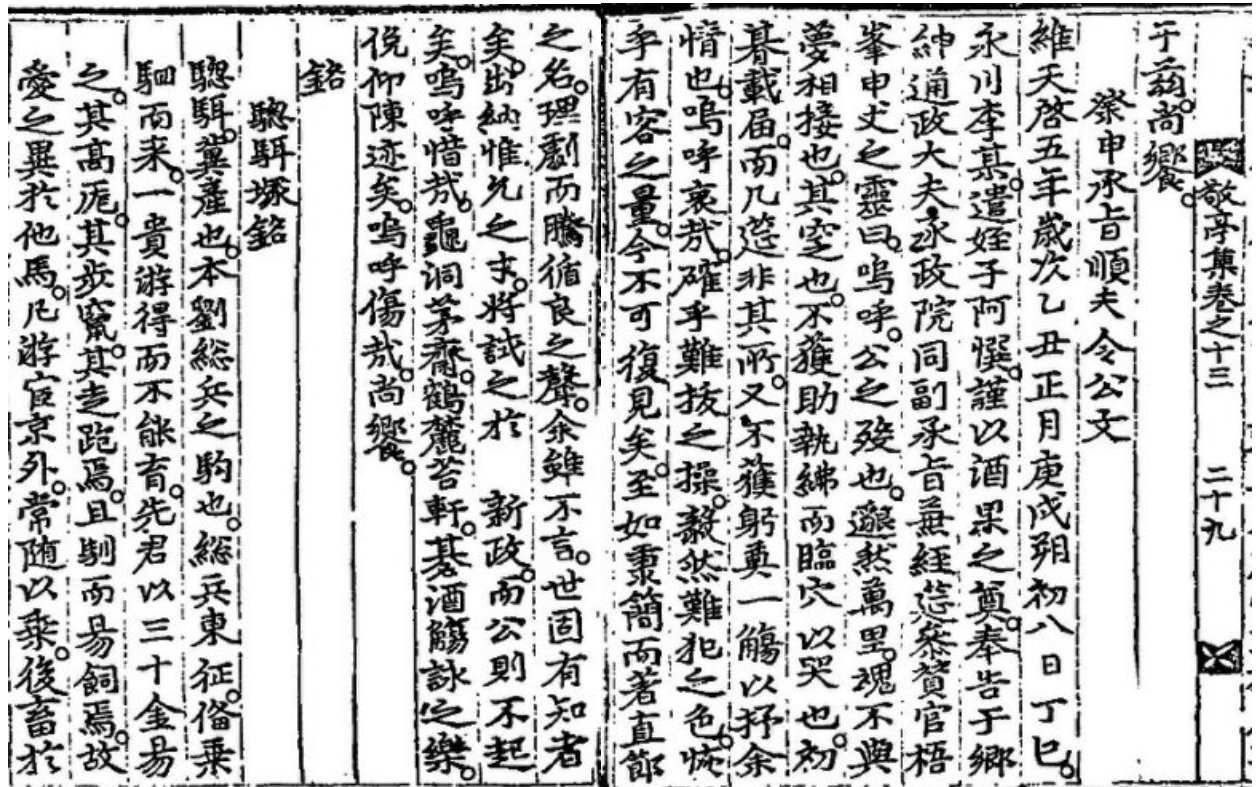 敬亭集卷之十三 二十九
于茲尙饗
祭申承旨順夫令公文
維天啓五年歲次乙丑正月庚戌朔初八日丁巳
永川李某遣姪子阿憕謹以酒果之奠奉告于鄕
紳通政大夫承政院同副承旨兼經筵叅贊官梧
峯申丈之靈曰嗚呼公之歿也邈然萬里魂不與
夢相接也其窆也不獲助執紼而臨穴以哭也初
朞載届而几筵非其所又不獲躬奠一觴以抒余
情也嗚呼哀哉確乎難拔之操毅然難犯之色恢
乎有容之量今不可復見矣至如秉簡而著直節
之名理劇而騰循良之聲余雖不言世固有知者
矣出納惟允之才將試之於 新政而公則不起
矣嗚呼惜哉龜洞茅齋鶴麓苔軒碁酒觴詠之樂
俛仰陳迹矣嗚呼傷哉尙饗
銘
騘駬塚銘
騘駬冀產也本劉総兵之駒也総兵東征俻乗
駟而来一貴游得而不能育先君以三十金易
之其高巵其步竄其走跑焉且馴而易飼焉故
愛之異於他馬凡游宦京外常随以乗後畜於